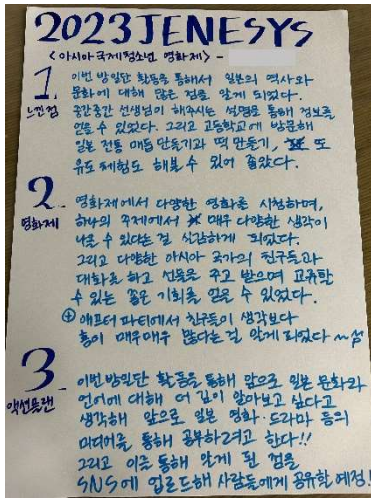 2023 JENESYS
<아시아 국제 청소년 영화제> -
1.
느낀점
이번 방일단 활동을 통해서 일본의 역사와
문화에 대해 많은 것을 알게 되었다.
중간중간 선생님이 해주시는 설명을 통해 정보를
얻을 수 있었다. 그리고 고등학교에 방문해
일본 전통 매듭 만들기과 떡 만들기, 또
유도 체험도 해볼 수 있어 좋았다.
2.
영화제
영화제에서 다양한 영화를 시청하며,
하나의 주제에서 매우 다양한 생각이
나올 수 있다는 걸 실감하게 되었다.
그리고 다양한 아시아 국가의 친구들과
대화를 하고 선물을 주고 받으며 교류할
수 있는 좋은 기회를 얻을 수 있었다.
+ 애프터 파티에서 친구들이 생각보다
흥이 매우매우 많다는 걸 알게 되었다 ~
3.
액션플랜
이번 방일단 활동을 통해 앞으로 일본 문화와
언어에 대해 더 깊이 알아보고 싶다고
생각해 앞으로 일본 영화·드라마 등의
미디어를 통해 공부하려고 한다!!
그리고 이를 통해 알게 된 점을
SNS에 업로드해 사람들에게 공유할 예정!